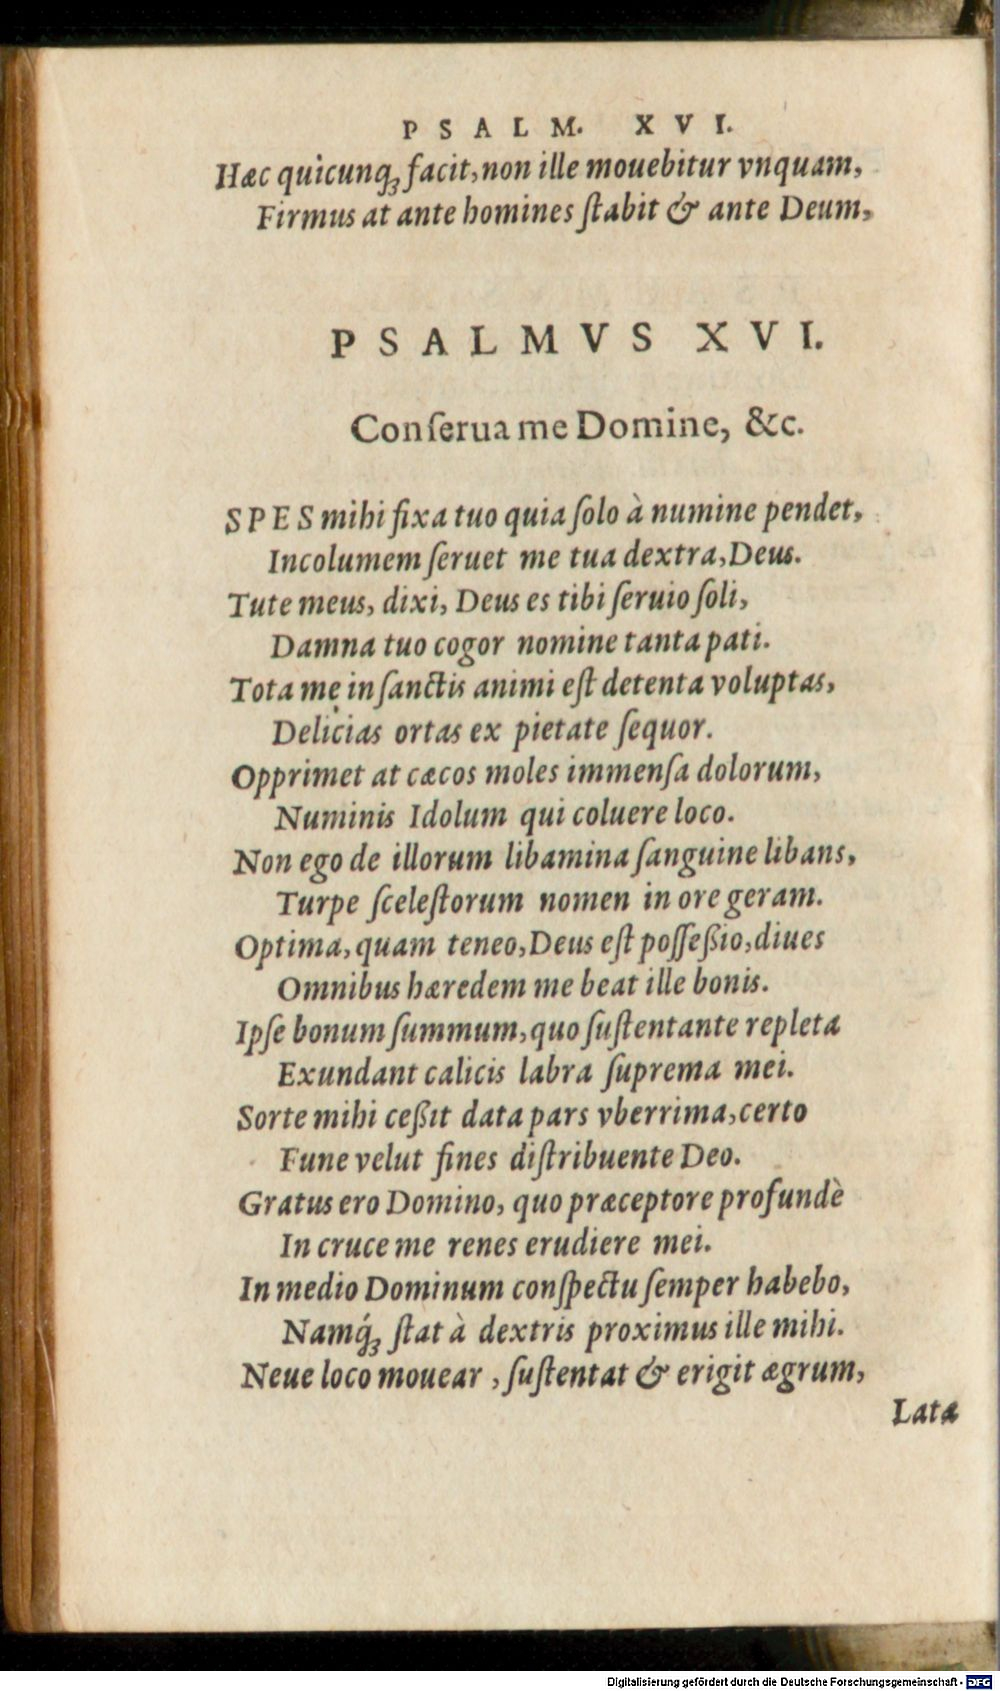 PSALM. XVI.
Hæc quicunq́; facit, non ille mouebitur vnquam,
Firmus at ante homines ſtabit & ante Deum,
PSALMVS XVI.
Conſerua me Domine, &c.
SPES mihi fixa tuo quia ſolo à numine pendet,
Incolumem ſeruet me tua dextra, Deus.
Tute meus, dixi, Deus es tibi ſeruio ſoli,
Damna tuo cogor nomine tanta pati.
Tota me in ſanctis animi eſt detenta voluptas,
Delicias ortas ex pietate ſequor.
Opprimet at cæcos moles immenſa dolorum,
Numinis Idolum qui coluere loco.
Non ego de illorum libamina ſanguine libans,
Turpe ſceleſtorum nomen in ore geram.
Optima, quam teneo, Deus eſt poſſeßio, diues
Omnibus hæredem me beat ille bonis.
Ipſe bonum ſummum, quo ſuſtentante repleta
Exundant calicis labra ſuprema mei.
Sorte mihi ceßit data pars vberrima, certo
Fune velut fines diſtribuente Deo.
Gratus ero Domino, quo præceptore profundè
In cruce me renes erudiere mei.
In medio Dominum conſpectu ſemper habebo,
Namq́; ſtat à dextris proximus ille mihi.
Neue loco mouear, ſuſtentat & erigit ægrum,
Latæ
Digitalisierung gefördert durch die Deutsche Forschungsgemeinschaft - DFG